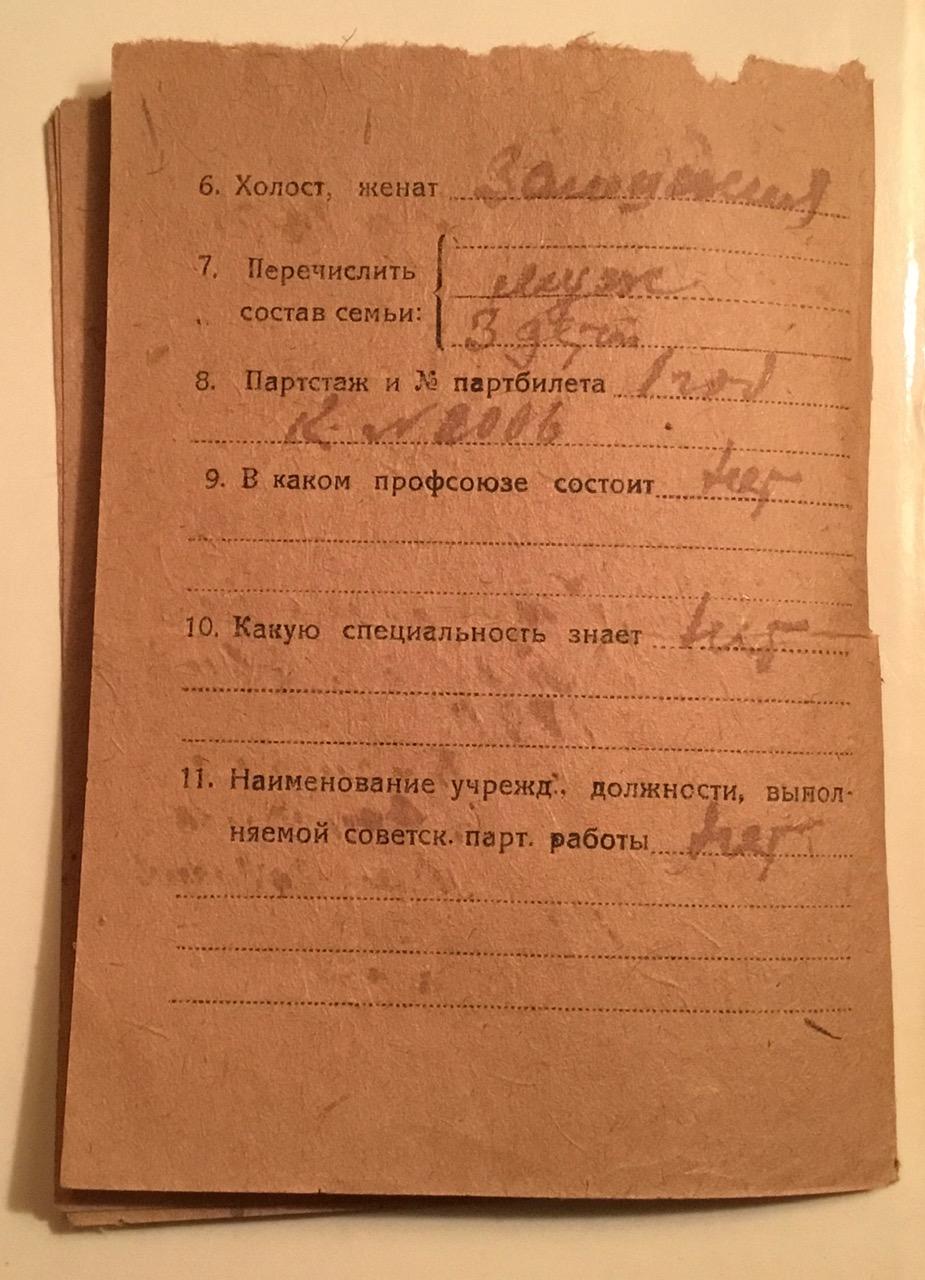 6. Холост, женат Замужняя
7. Перечислить
состав семьи:
муж
3 детей
8. Партстаж и № партбилета 1 год
К. N
9. В каком профсоюзе состоит нет
10. Какую специальность знает нет
11. Наименование учрежд., должности, выпол-
няемой советск. парт. работы нет